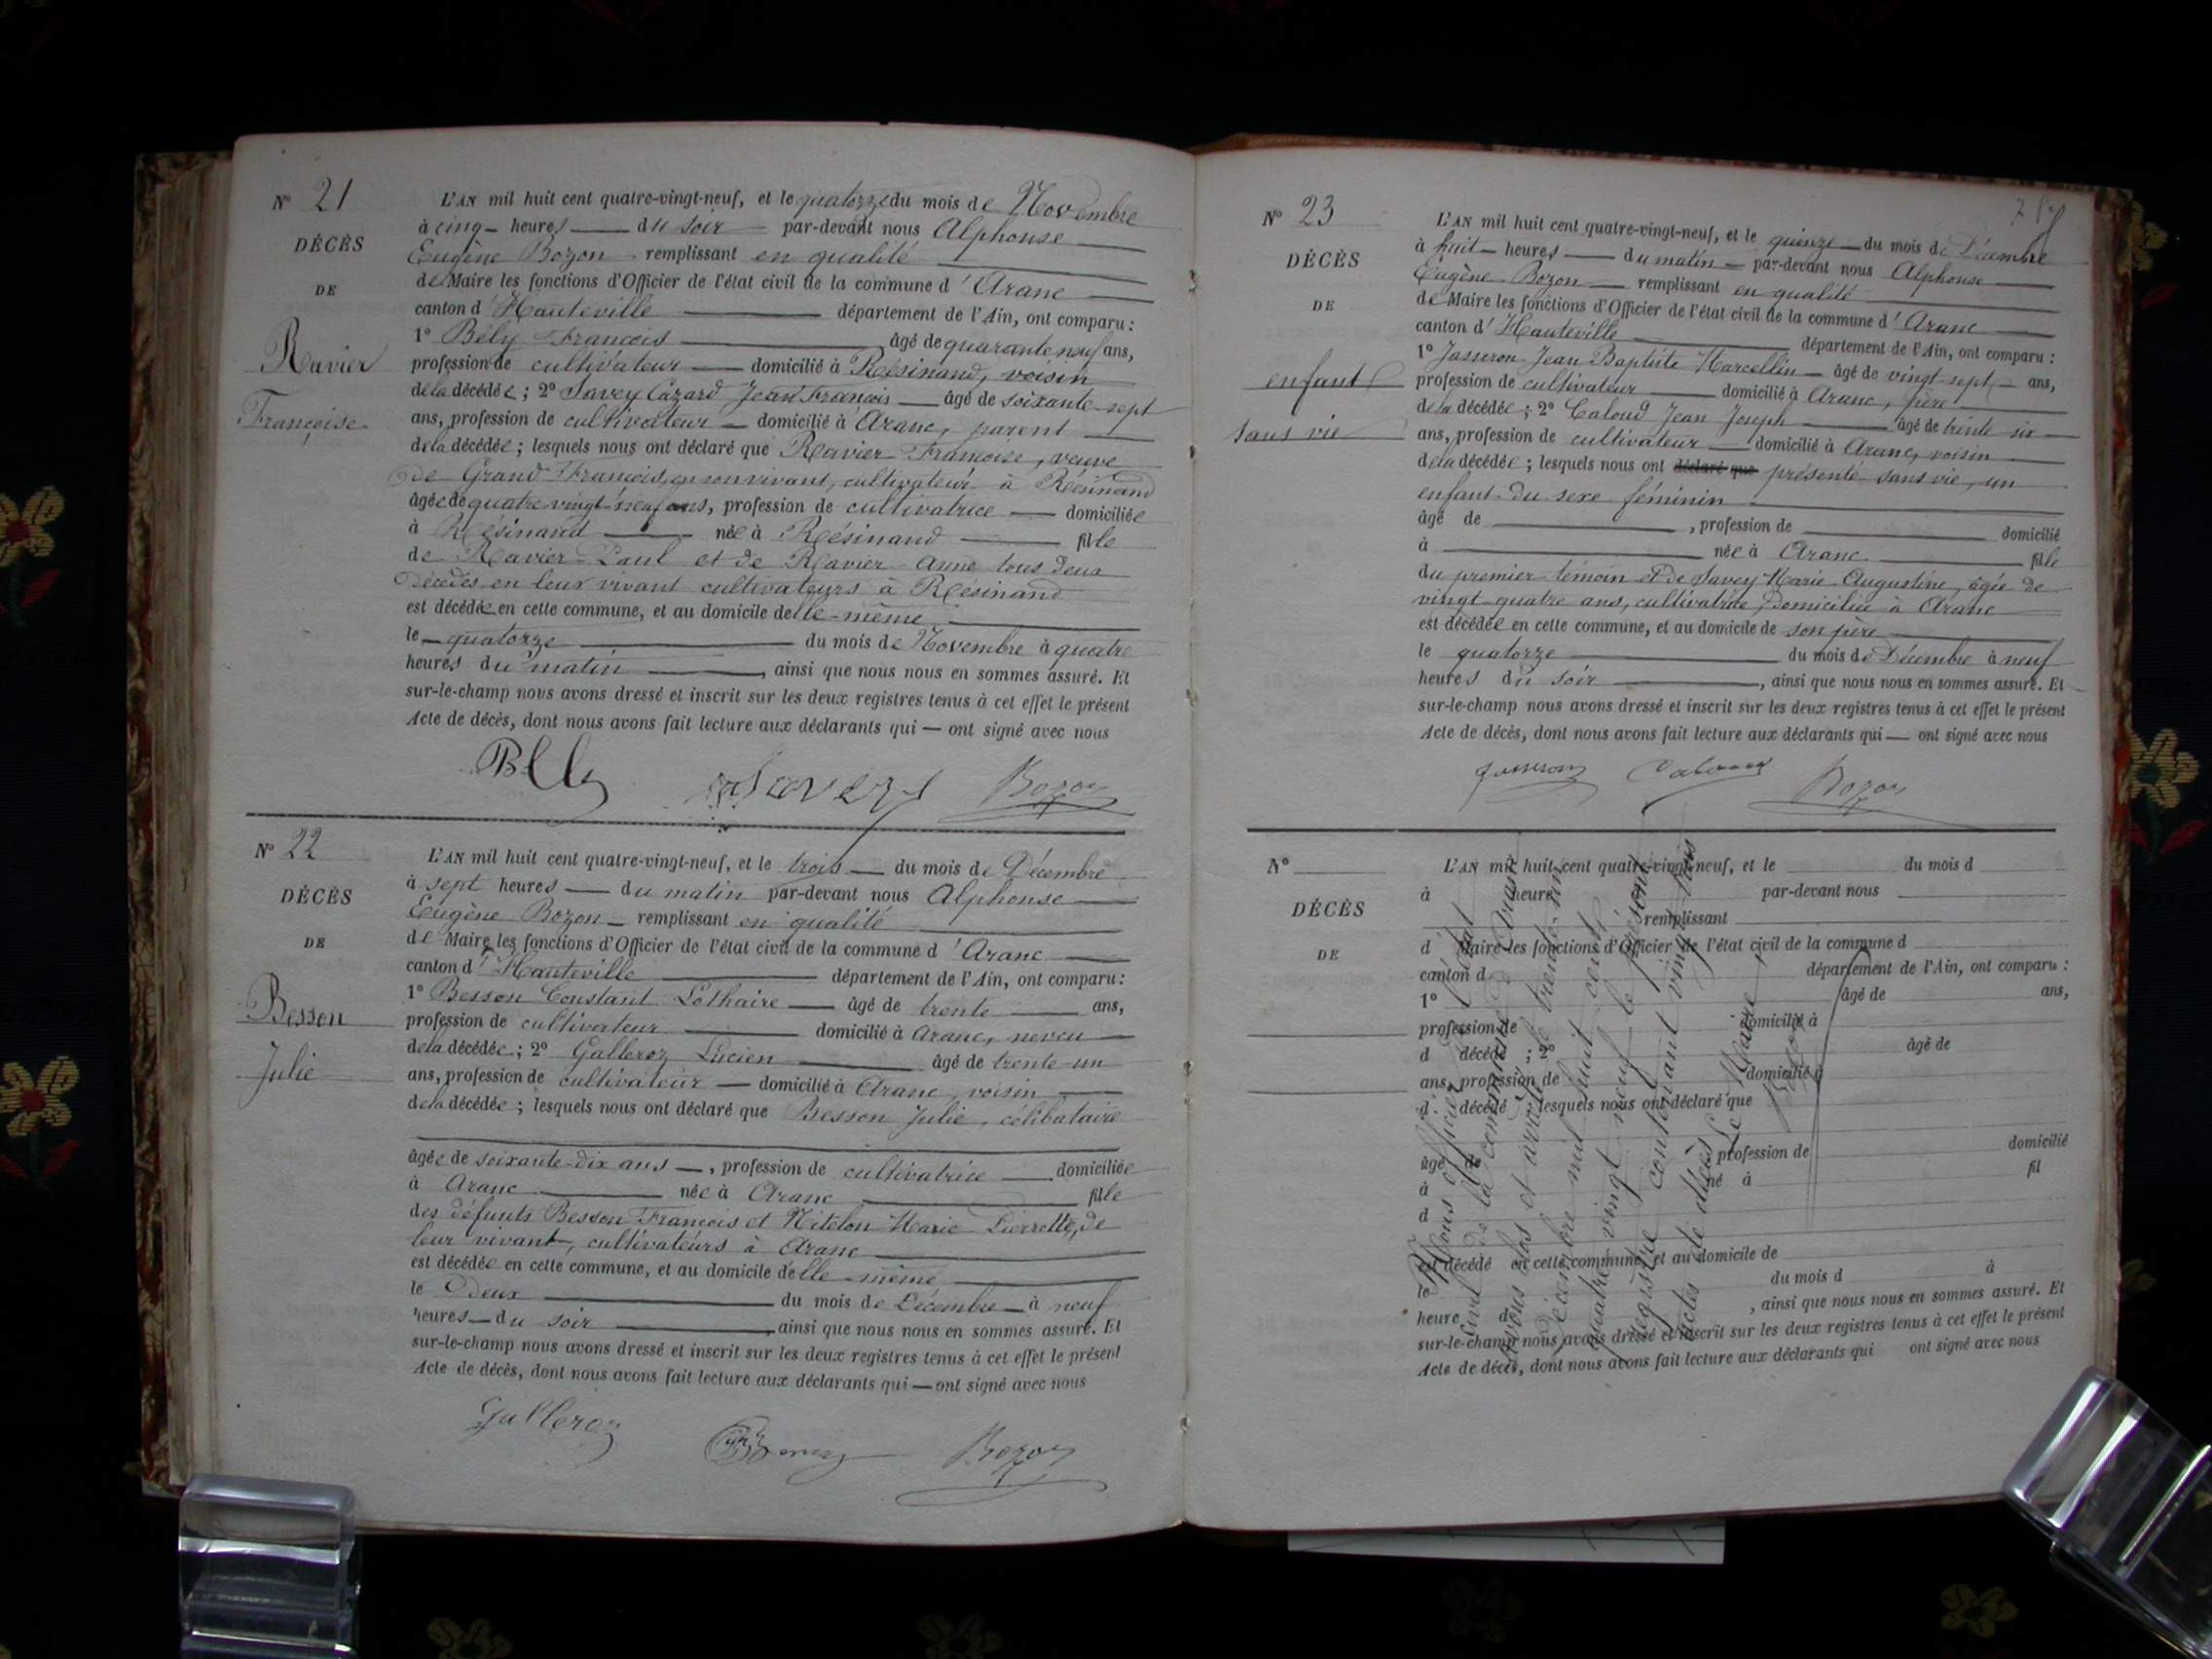 N° 21
DÉCÈS
DE
Ravier
Françoise
L'AN mil huit cent quatre-vingt-neuf, et le quatorze du mois de Novembre
à cinq heures du soir par-devant nous Alphonse
Eugène Bozon remplissant en qualité
de Maire les fonctions d'Officier de l'état civil de la commune d'Aranc
canton d'Hauteville département de l'Ain, ont comparu :
1° Bély François âgé de quarante neuf ans,
profession de cultivateur domicilié à Résinand, voisin
de la décédée ; 2° Savey Cazard Jean François âgé de soixante-sept
ans, profession de cultivateur domicilié à Aranc, parent
de la décédée ; lesquels nous ont déclaré que Ravier Françoise, veuve
de Grand François, en son vivant, cultivateur à Résinand
âgée de quatre vingt-neuf ans, profession de cultivatrice domiciliée
à Résinand née à Résinand fille
de Ravier Paul et de Ravier Anne tous deux
décédés en leur vivant cultivateurs à Résinand
est décédée en cette commune, et au domicile de elle-même
le quatorze du mois de Novembre à quatre
heures du matin, ainsi que nous nous en sommes assuré. Et
sur-le-champ nous avons dressé et inscrit sur les deux registres tenus à cet effet le présent
Acte de décès, dont nous avons fait lecture aux déclarants qui — ont signé avec nous
Bély Savey Bozon
N° 22
DÉCÈS
DE
Besson
Julie
L'AN mil huit cent quatre-vingt-neuf, et le trois du mois de Décembre
à sept heures du matin par-devant nous Alphonse
Eugène Bozon remplissant en qualité
de Maire les fonctions d'Officier de l'état civil de la commune d'Aranc
canton d'Hauteville département de l'Ain, ont comparu :
1° Besson Constant Lothaire âgé de trente ans,
profession de cultivateur domicilié à Aranc, neveu
de la décédée ; 2° Galleroz Lucien âgé de trente-un
ans, profession de cultivateur domicilié à Aranc, voisin
de la décédée ; lesquels nous ont déclaré que Besson Julie, célibataire
âgée de soixante-dix ans, profession de cultivatrice domiciliée
à Aranc née à Aranc fille
des défunts Besson François et Nitelon Marie Pierrette, de
leur vivant, cultivateurs à Aranc
est décédée en cette commune, et au domicile d'elle-même
le deux du mois de Décembre à neuf
heures du soir, ainsi que nous nous en sommes assuré. Et
sur-le-champ nous avons dressé et inscrit sur les deux registres tenus à cet effet le présent
Acte de décès, dont nous avons fait lecture aux déclarants qui — ont signé avec nous
Galleroz Bozon
N° 23
DÉCÈS
DE
enfant
sans vie
L'AN mil huit cent quatre-vingt-neuf, et le quinze du mois de Décembre
à huit heures du matin par-devant nous Alphonse
Eugène Bozon remplissant en qualité
de Maire les fonctions d'Officier de l'état civil de la commune d'Aranc
canton d'Hauteville département de l'Ain, ont comparu :
1° Jasseron Jean Baptiste Marcellin âgé de vingt-sept ans,
profession de cultivateur domicilié à Aranc, père
de la décédée ; 2° Caloud Jean Joseph âgé de trente six
ans, profession de cultivateur domicilié à Aranc, voisin
de la décédée ; lesquels nous ont déclaré que présenté sans vie, un
enfant du sexe féminin
âgé de , profession de domicilié
à née à Aranc fille
du premier témoin et de Savey Marie Augustine, âgée de
vingt-quatre ans, cultivatrice, domiciliée à Aranc
est décédée en cette commune, et au domicile de son père
le quatorze du mois de Décembre à neuf
heures du soir, ainsi que nous nous en sommes assuré. Et
sur-le-champ nous avons dressé et inscrit sur les deux registres tenus à cet effet le présent
Acte de décès, dont nous avons fait lecture aux déclarants qui — ont signé avec nous
Jasseron Caloud Bozon
N°
DÉCÈS
DE
L'AN mil huit cent quatre-vingt-neuf, et le du mois d
à heure par-devant nous
remplissant
d Maire les fonctions d'Officier de l'état civil de la commune d
canton d département de l'Ain, ont comparu :
1° âgé de ans,
profession de domicilié à
d décédé ; 2° âgé de
ans, profession de domicilié à
d décédé ; lesquels nous ont déclaré que
âgé de profession de domicilié
à né à fil
d
est décédé en cette commune, et au domicile de
le du mois d à
heure d , ainsi que nous nous en sommes assuré. Et
sur-le-champ nous avons dressé et inscrit sur les deux registres tenus à cet effet le présent
Acte de décès, dont nous avons fait lecture aux déclarants qui ont signé avec nous
Nous officier de l'état
civil de la commune d'Aranc
avons clos et arrêté le trente-un
décembre mil huit cent
quatre vingt neuf le présent
registre contenant vingt-trois
actes de décès
Le Maire,
Bozon